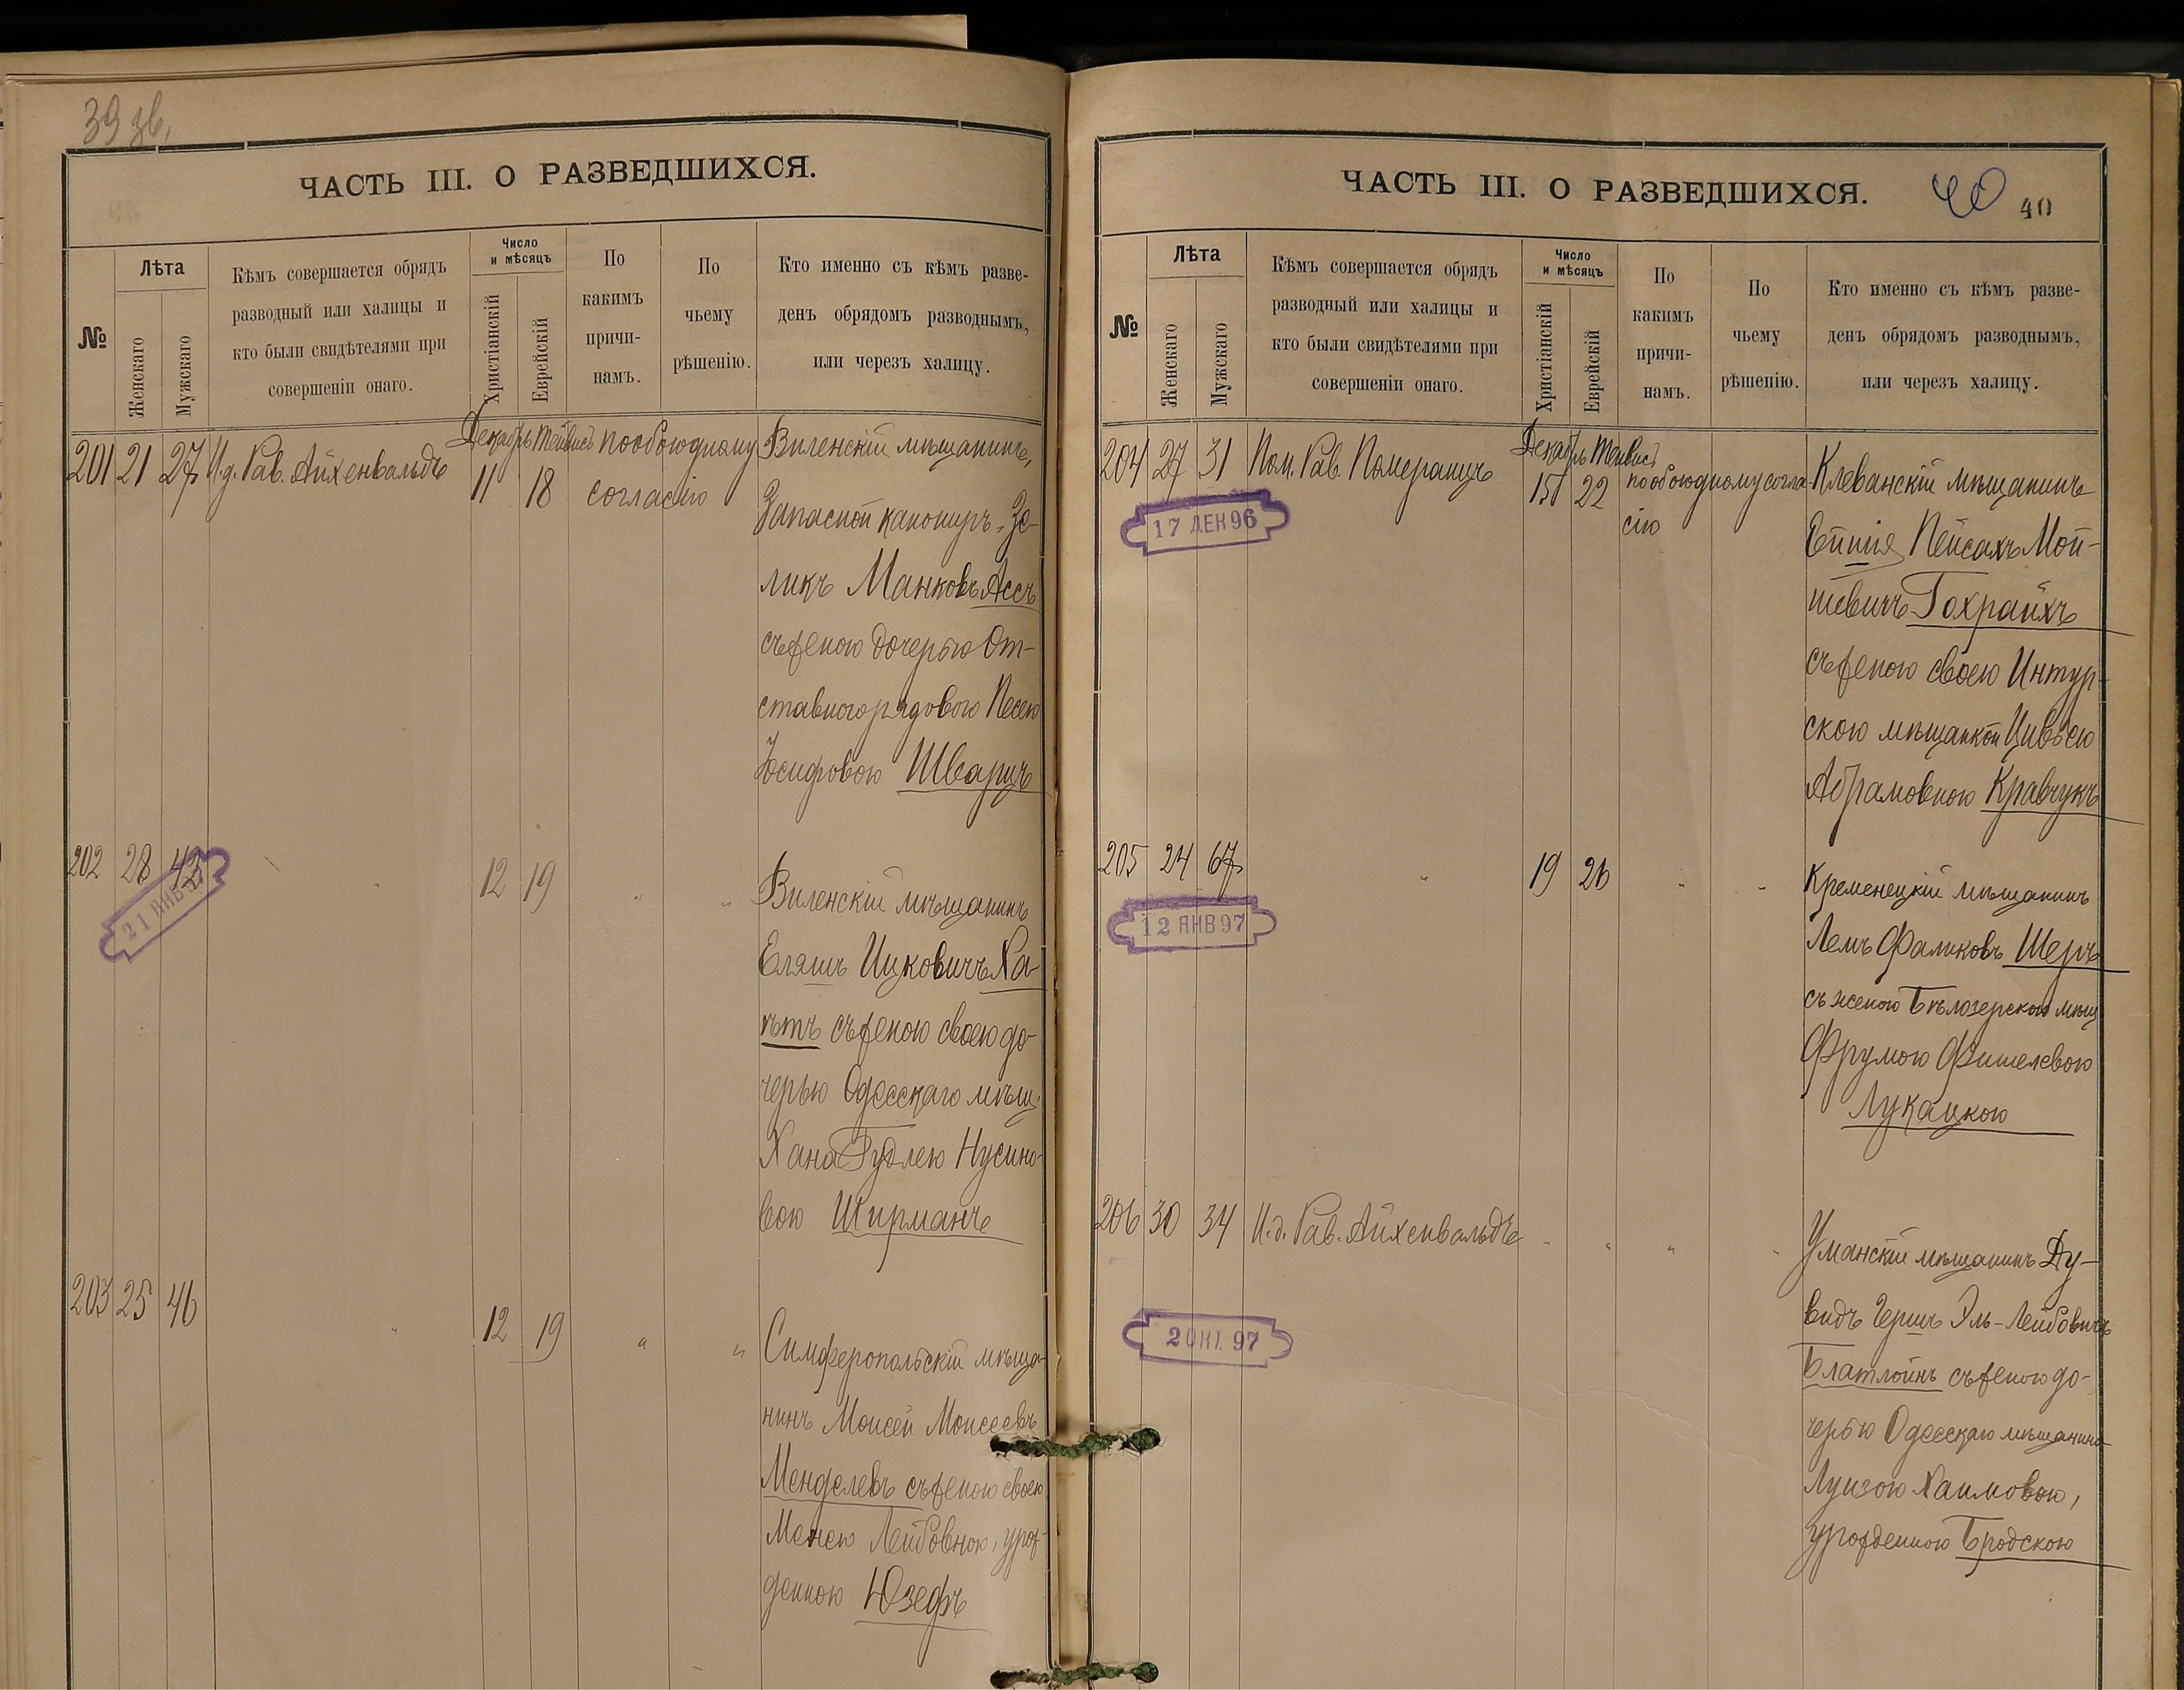 39 зв.
ЧАСТЬ III. О РАЗВЕДШИХСЯ.
№
Лѣта
Женскаго
Мужскаго
Кѣмъ совершается обрядъ
разводный или халицы и
кто были свидѣтелями при
совершеніи онаго.
Число
и мѣсяцъ
Христіанскій
Еврейскій
По
какимъ
причи-
намъ.
По
чьему
рѣшенію.
Кто именно съ кѣмъ разве-
денъ обрядомъ разводнымъ,
или черезъ халицу.
201 21 27 И.д. Рав. Айхенвальдъ
Декабрь Тейвисъ
11 18
по обоюдному
согласію
Виленскій мѣщанинъ,
Запасной канониръ, Зе-
ликъ Манковъ Ассъ
съ женою дочерью От-
ставного рядового Песею
Іосифовою Шварцъ
202 28 42
21 ЯНВ 97
" 12 19 " "
Виленскій мѣщанинъ
Еляшъ Ицковичъ Ха-
нѣтъ съ женою своею до-
черью Одесскаго мѣщ.
Хана Гудлею Нусино-
вою Ширманъ
203 25 46 " 12 19 " "
Симферопольскій мѣща-
нинъ Моисей Моисеевъ
Менделевъ съ женою своею
Менею Лейбовною, урож-
денною Юзефъ
ЧАСТЬ III. О РАЗВЕДШИХСЯ.
40
40
№
Лѣта
Женскаго
Мужскаго
Кѣмъ совершается обрядъ
разводный или халицы и
кто были свидѣтелями при
совершеніи онаго.
Число
и мѣсяцъ
Христіанскій
Еврейскій
По
какимъ
причи-
намъ.
По
чьему
рѣшенію.
Кто именно съ кѣмъ разве-
денъ обрядомъ разводнымъ,
или черезъ халицу.
204 27 31 Пом. Рав. Померанцъ
17 ДЕК 96
Декабрь Тейвисъ
15 22
по обоюдному согла
сію
Клеванскій мѣщанинъ
Пейсахъ Мой-
шевичъ Гохрайхъ
съ женою своею Интур-
скою мѣщанкой Цивьею
Абрамовною Кравчукъ
205 24 67 " 19 26 " "
12 ЯНВ 97
Кременецкій мѣщанинъ
Лемъ Фальковъ Шеръ
съ женою Бѣлозерскою мѣщ
Фрумою Фишелевою
Лукацкою
206 30 34 И.д. Рав. Айхенвальдъ " " " "
2 ОКТ. 97
Уманскій мѣщанинъ Ду-
видъ Гершъ Эль-Лейбовичъ
Блатлойнъ съ женою до-
черью Одесскаго мѣщанина
Луизою Хаимовою,
урожденною Бродскою